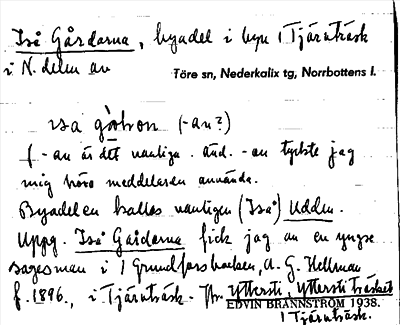 Iså Gårdarna, byadel i byn 1 Tjärnträsk
i N. delen av
Töre sn, Nederkalix tg, Norrbottens l.
ɩsa gò̱ron (-an?)
f -an är det vanliga. änd. -on tyckte jag
mig höra meddelaren använda.
Byadelen kallas vanligen (Iså) Udden.
Uppg. Iså Gårdarna fick jag av en yngre
sagesman i 1 Grundforsbacken, A. G. Hellman
f. 1896., i Tjärnträsk. Ytterst i Ytterstträsket
EDVIN BRÄNNSTRÖM 1938.
1 Tjärnträsk.